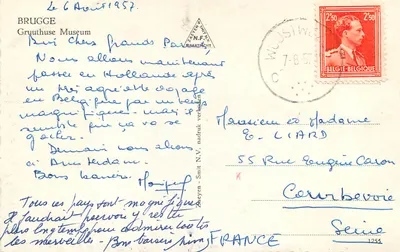 le 6 Août 1957.
BRUGGE
Gruuthuse Museum
chers Grands Par
Nous allons maintenant
passer en Hollande après
un très agréable voyage
en Belgique par un temps
magnifique. mais il
semble que ça va se
gâcher.
Demain nous allons
à Amsterdam.
Bons baisers
Tous ces pays sont magnifiques
il faudrait pouvoir y rester
plus longtemps pour admirer toutes
les merveilles - Bons baisers
2F50 2F50
BELGIE-BELGIQUE
7-8-57
Monsieur et Madame
E. LIARD
55 Rue Eugène Caron
Courbevoie
Seine
FRANCE
1255